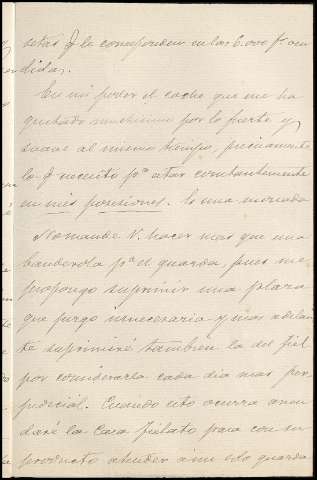 setas q. le corresponden en las 6.000 ps. ven
didas.
En mi poder el cache que me ha
gustado muchisimo por lo fuerte y
suave al mismo tiempo, precisamente
lo q. necesito pa. atar constantemente
en mis posesiones. Es una monada
No mande V. hacer mas que una
banderola pa. el guarda, pues me
propongo suprimir una plaza
que juzgo innecesaria y mas adelan
te suprimiré tambien la del fiel
por considerarla cada dia mas per
judicial. Cuando esto ocurra arren
daré la Casa fielato para con su
producto atender á un solo guarda